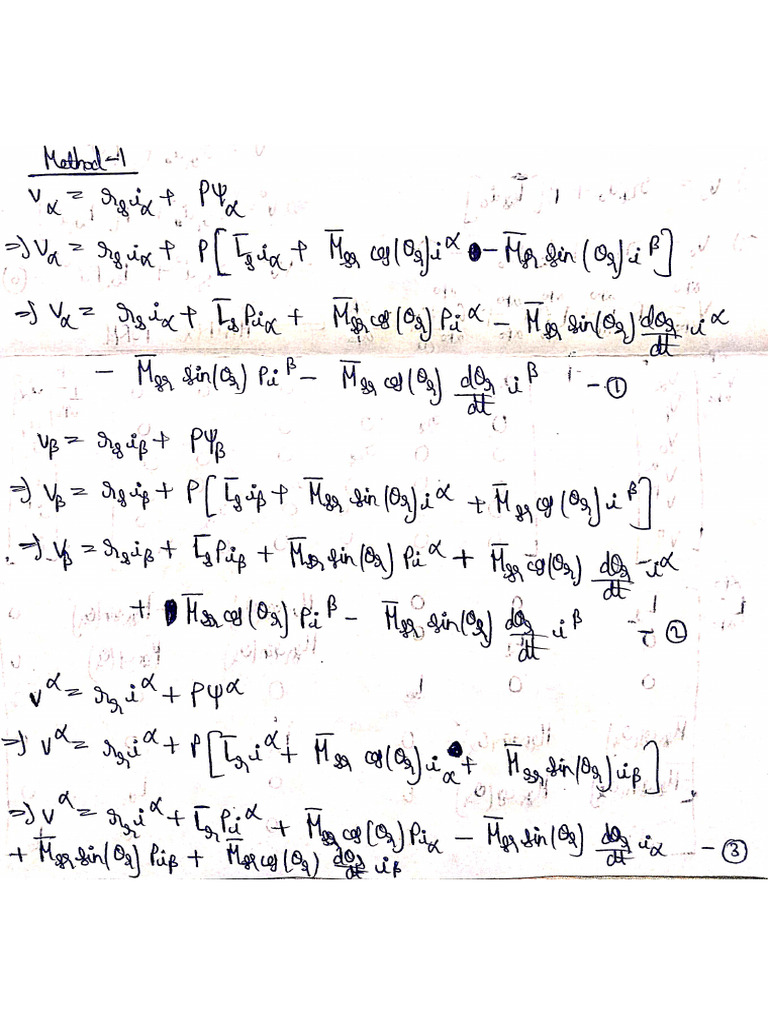 Method-1
v_α = r_s i_α + Pψ_α
⇒ v_α = r_s i_α + P[L̄_s i_α + M̄_sr cos(θ_r) i^α - M̄_sr sin(θ_r) i^β]
⇒ v_α = r_s i_α + L̄_s P i_α + M̄_sr cos(θ_r) P i^α - M̄_sr sin(θ_r) dθ_r/dt i^α
- M̄_sr sin(θ_r) P i^β - M̄_sr cos(θ_r) dθ_r/dt i^β - ①
v_β = r_s i_β + Pψ_β
⇒ v_β = r_s i_β + P[L̄_s i_β + M̄_sr sin(θ_r) i^α + M̄_sr cos(θ_r) i^β]
⇒ v_β = r_s i_β + L̄_s P i_β + M̄_sr sin(θ_r) P i^α + M̄_sr cos(θ_r) dθ_r/dt i^α
+ M̄_sr cos(θ_r) P i^β - M̄_sr sin(θ_r) dθ_r/dt i^β - ②
v^α = r_r i^α + Pψ^α
⇒ v^α = r_r i^α + P[L̄_r i^α + M̄_sr cos(θ_r) i_α + M̄_sr sin(θ_r) i_β]
⇒ v^α = r_r i^α + L̄_r P i^α + M̄_sr cos(θ_r) P i_α - M̄_sr sin(θ_r) dθ_r/dt i_α - ③
+ M̄_sr sin(θ_r) P i_β + M̄_sr cos(θ_r) dθ_r/dt i_β